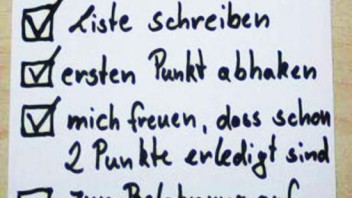 Liste schreiben
ersten Punkt abhaken
mich freuen, dass schon
2 Punkte erledigt sind
zur Belohnung auf